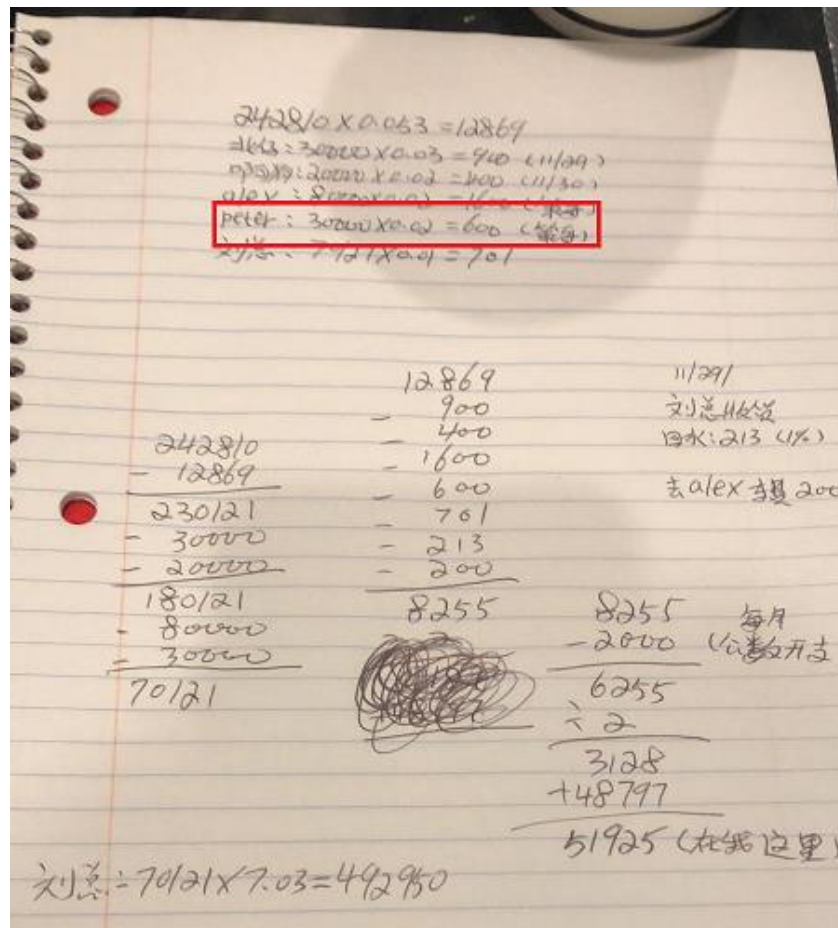 242810 x 0.053 = 12869
: 30000 x 0.03 = 900 (11/29)
: 20000 x 0.02 = 400 (11/30)
alex : 80000 x 0.02 = 1600
peter : 30000 x 0.02 = 600
刘总 : 70121 x 0.01 = 701
242810
- 12869
230121
- 30000
- 20000
180121
- 80000
- 30000
70121
12869
- 900
- 400
- 1600
- 600
- 701
- 213
- 200
8255
11/29/
刘总收
回水: 213 (1%)
去alex 200
8255
- 2000
6255
÷ 2
3128
+48797
51925 (在我这里)
每月
(公数开支
刘总: 70121 x 7.03 = 492950